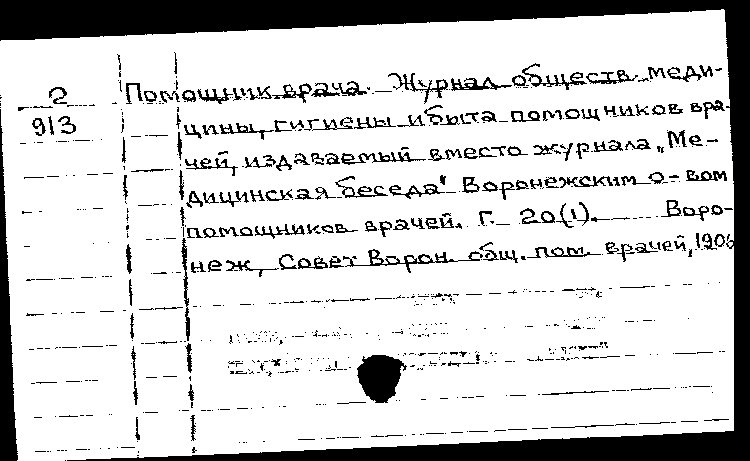 2 Помощник врача. Журнал обществ. меди-
913 цины, гигиены и быта помощников вра-
чей, издаваемый вместо журнала „Ме-
дицинская беседа" Воронежским о-вом
помощников врачей. Г. 20(1). Воро-
неж, Совет Ворон. общ. пом. врачей, 1906